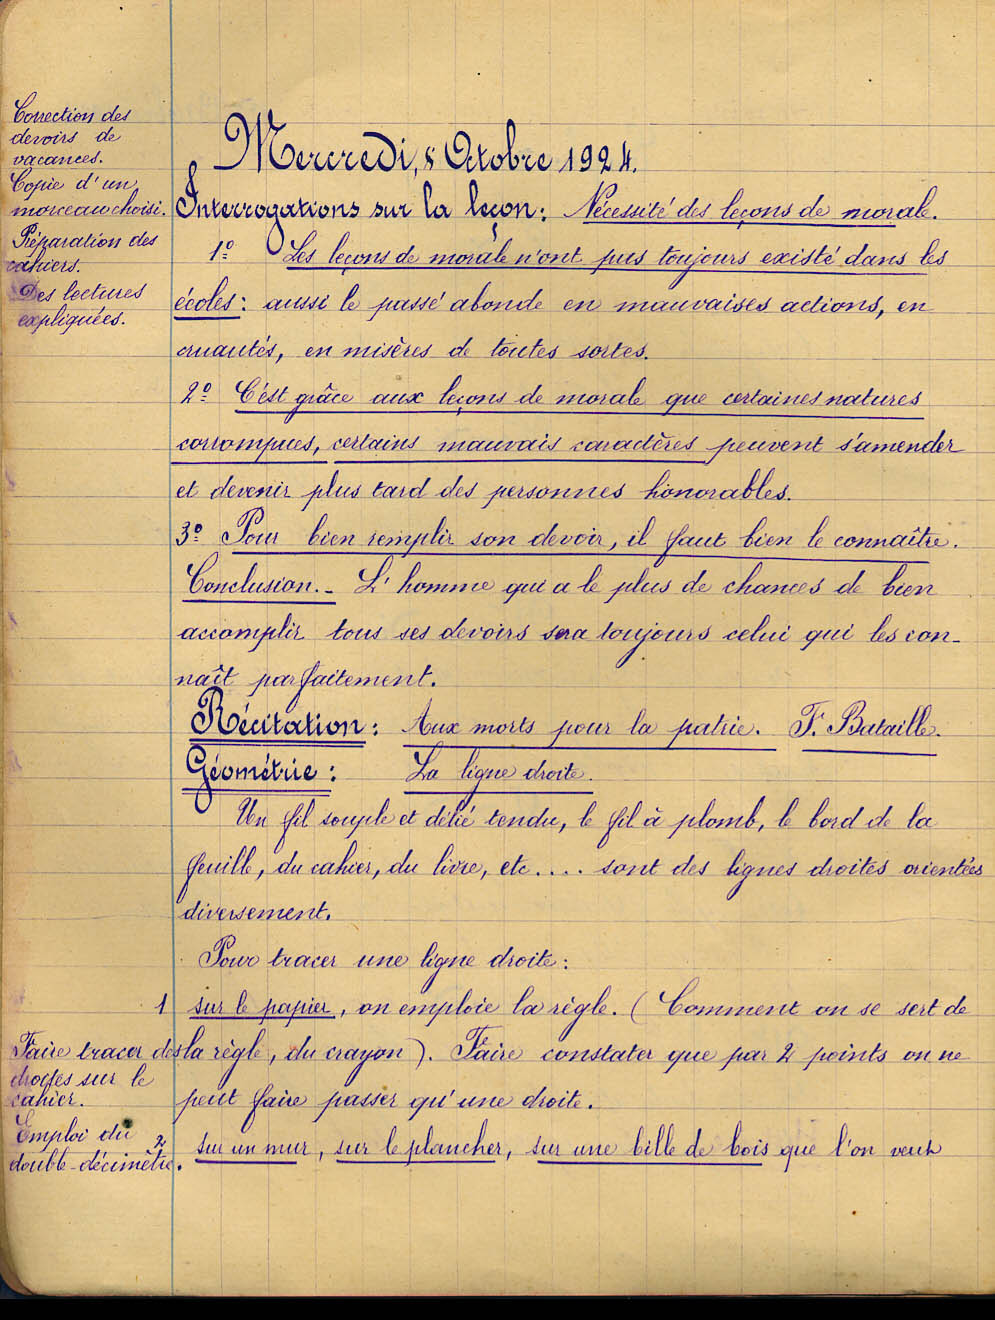 Correction des
devoirs de
vacances.
Copie d'un
morceau choisi.
Préparation des
cahiers.
Des lectures
expliquées.
Mercredi, 8 Octobre 1924.
Interrogations sur la leçon : Nécessité des leçons de morale.
1° Les leçons de morale n'ont pas toujours existé dans les
écoles : aussi le passé abonde en mauvaises actions, en
cruautés, en misères de toutes sortes.
2° C'est grâce aux leçons de morale que certaines natures
corrompues, certains mauvais caractères peuvent s'amender
et devenir plus tard des personnes honorables.
3° Pour bien remplir son devoir, il faut bien le connaître.
Conclusion.- L'homme qui a le plus de chances de bien
accomplir tous ses devoirs sera toujours celui qui les con-
naît parfaitement.
Récitation : Aux morts pour la patrie. F. Bataille.
Géométrie : La ligne droite.
Un fil souple et délié tendu, le fil à plomb, le bord de la
feuille, du cahier, du livre, etc.... sont des lignes droites orientées
diversement.
Pour tracer une ligne droite :
1 sur le papier, on emploie la règle. (Comment on se sert de
la règle, du crayon). Faire constater que par 2 points on ne
peut faire passer qu'une droite.
Faire tracer des
droites sur le
cahier.
Emploi du
double-décimètre.
2 sur un mur, sur le plancher, sur une bille de bois que l'on veut